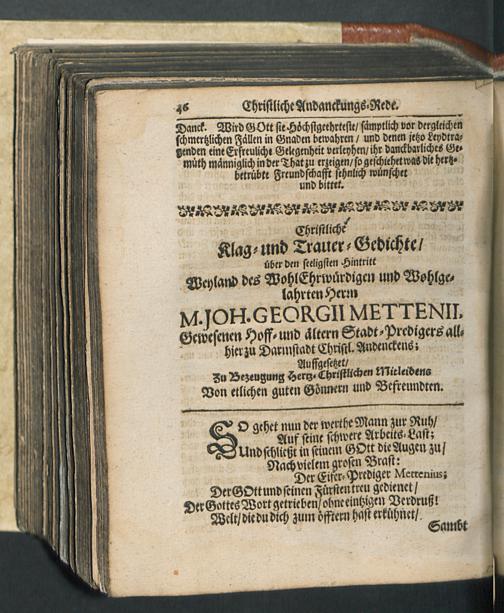 46 Christliche Andanckungs-Rede.
Danck. Wird GOtt sie Höchstgeehrteste/ sämptlich vor dergleichen
schmertzlichen Fällen in Gnaden bewahren / und denen jetzo Leydtra-
genden eine Erfreuliche Gelegenheit verleyhen/ ihr danckbarliches Ge-
müth männiglich in der That zu erzeigen/ so geschiehet was die hertz-
betrübte Freundschafft sehnlich wünschet
und bittet.
Christliche
Klag- und Trauer-Gedichte/
über den seeligsten Hintritt
Weyland des WohlEhrwürdigen und Wohlge-
lahrten Herrn
M. JOH. GEORGII METTENII.
Gewesenen Hoff- und ältern Stadt-Predigers all-
hier zu Darmstadt Christl. Andenckens;
Auffgesetzet/
Zu Bezeugung Hertz-Christlichen Mitleidens
Von etlichen guten Gönnern und Befreundten.
SO gehet nun der werthe Mann zur Ruh/
Auf seine schwere Arbeits-Last;
Und schließt in seinem GOtt die Augen zu/
Nach vielem grosen Brast:
Der Eifer-Prediger Mettenius;
Der GOtt und seinen Fürsten treu gedienet/
Der Gottes Wort getrieben/ ohne eintzigen Verdruß!
Welt/ die du dich zum öfftern hast erkühnet/
Sambt